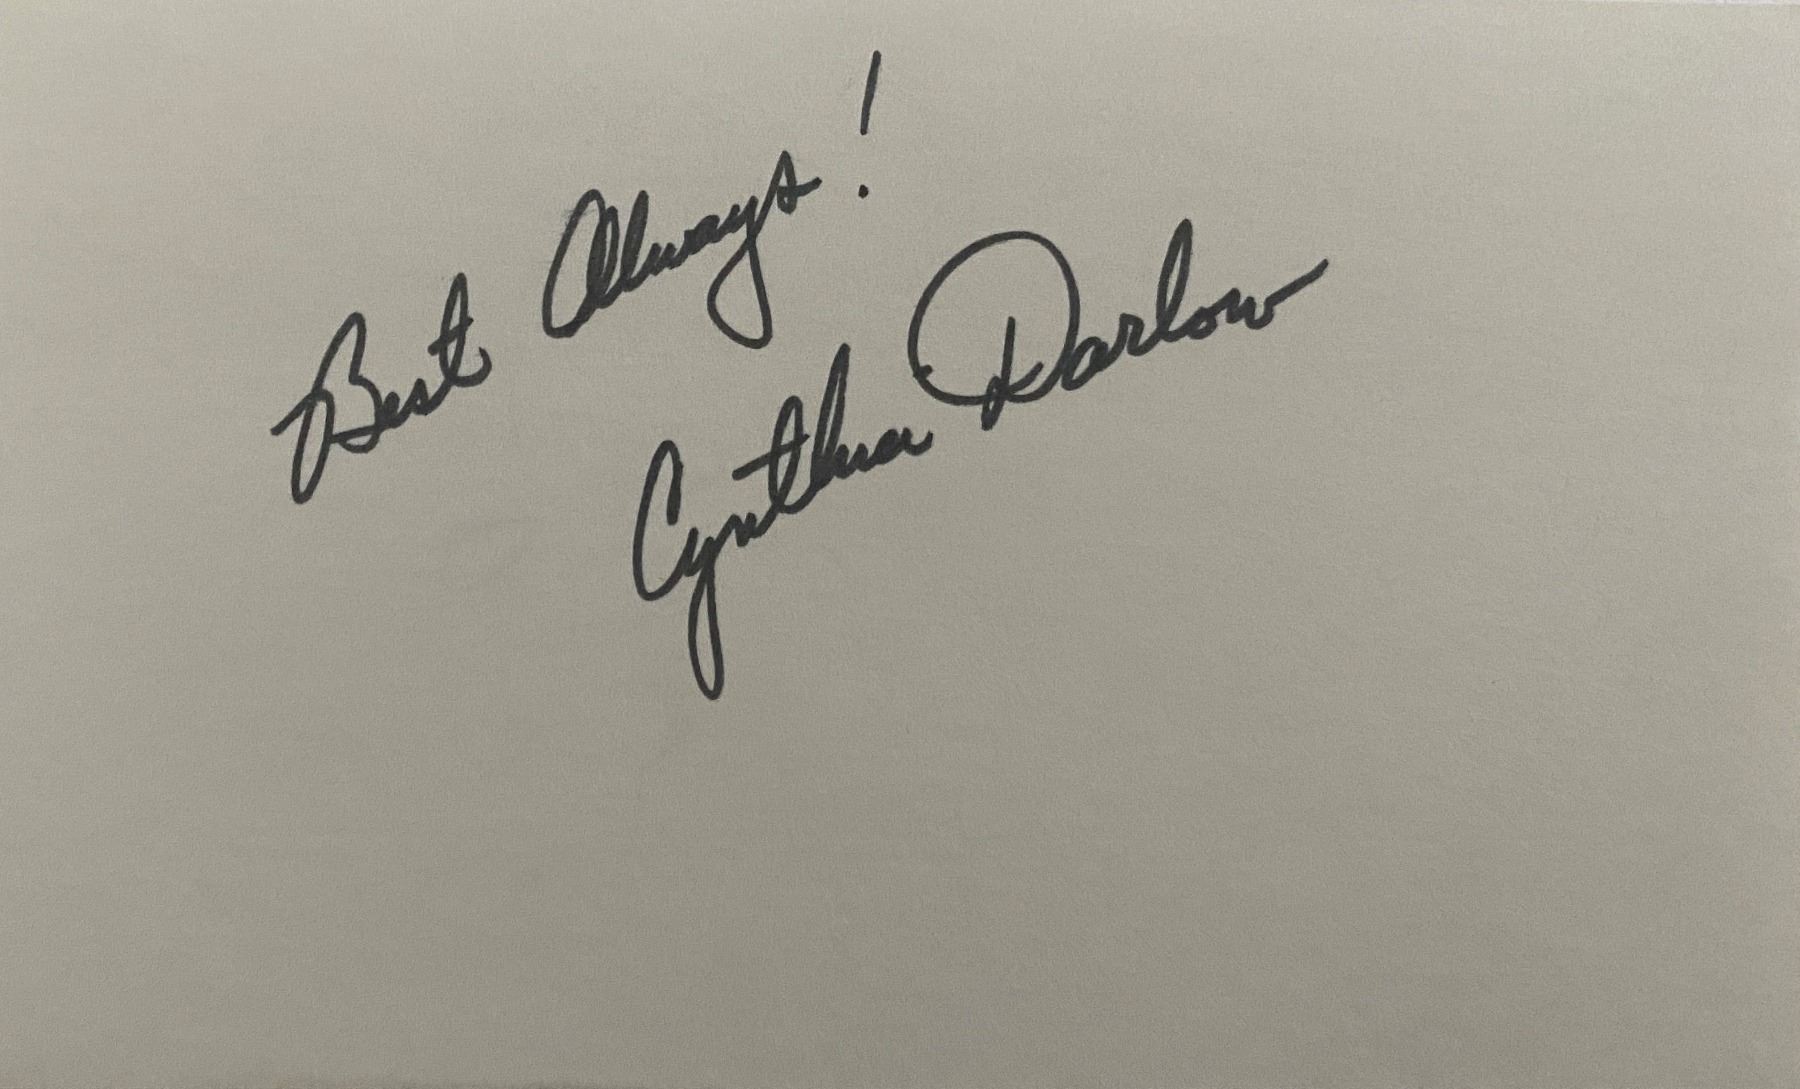 Best Always!
Cynthia Darlow